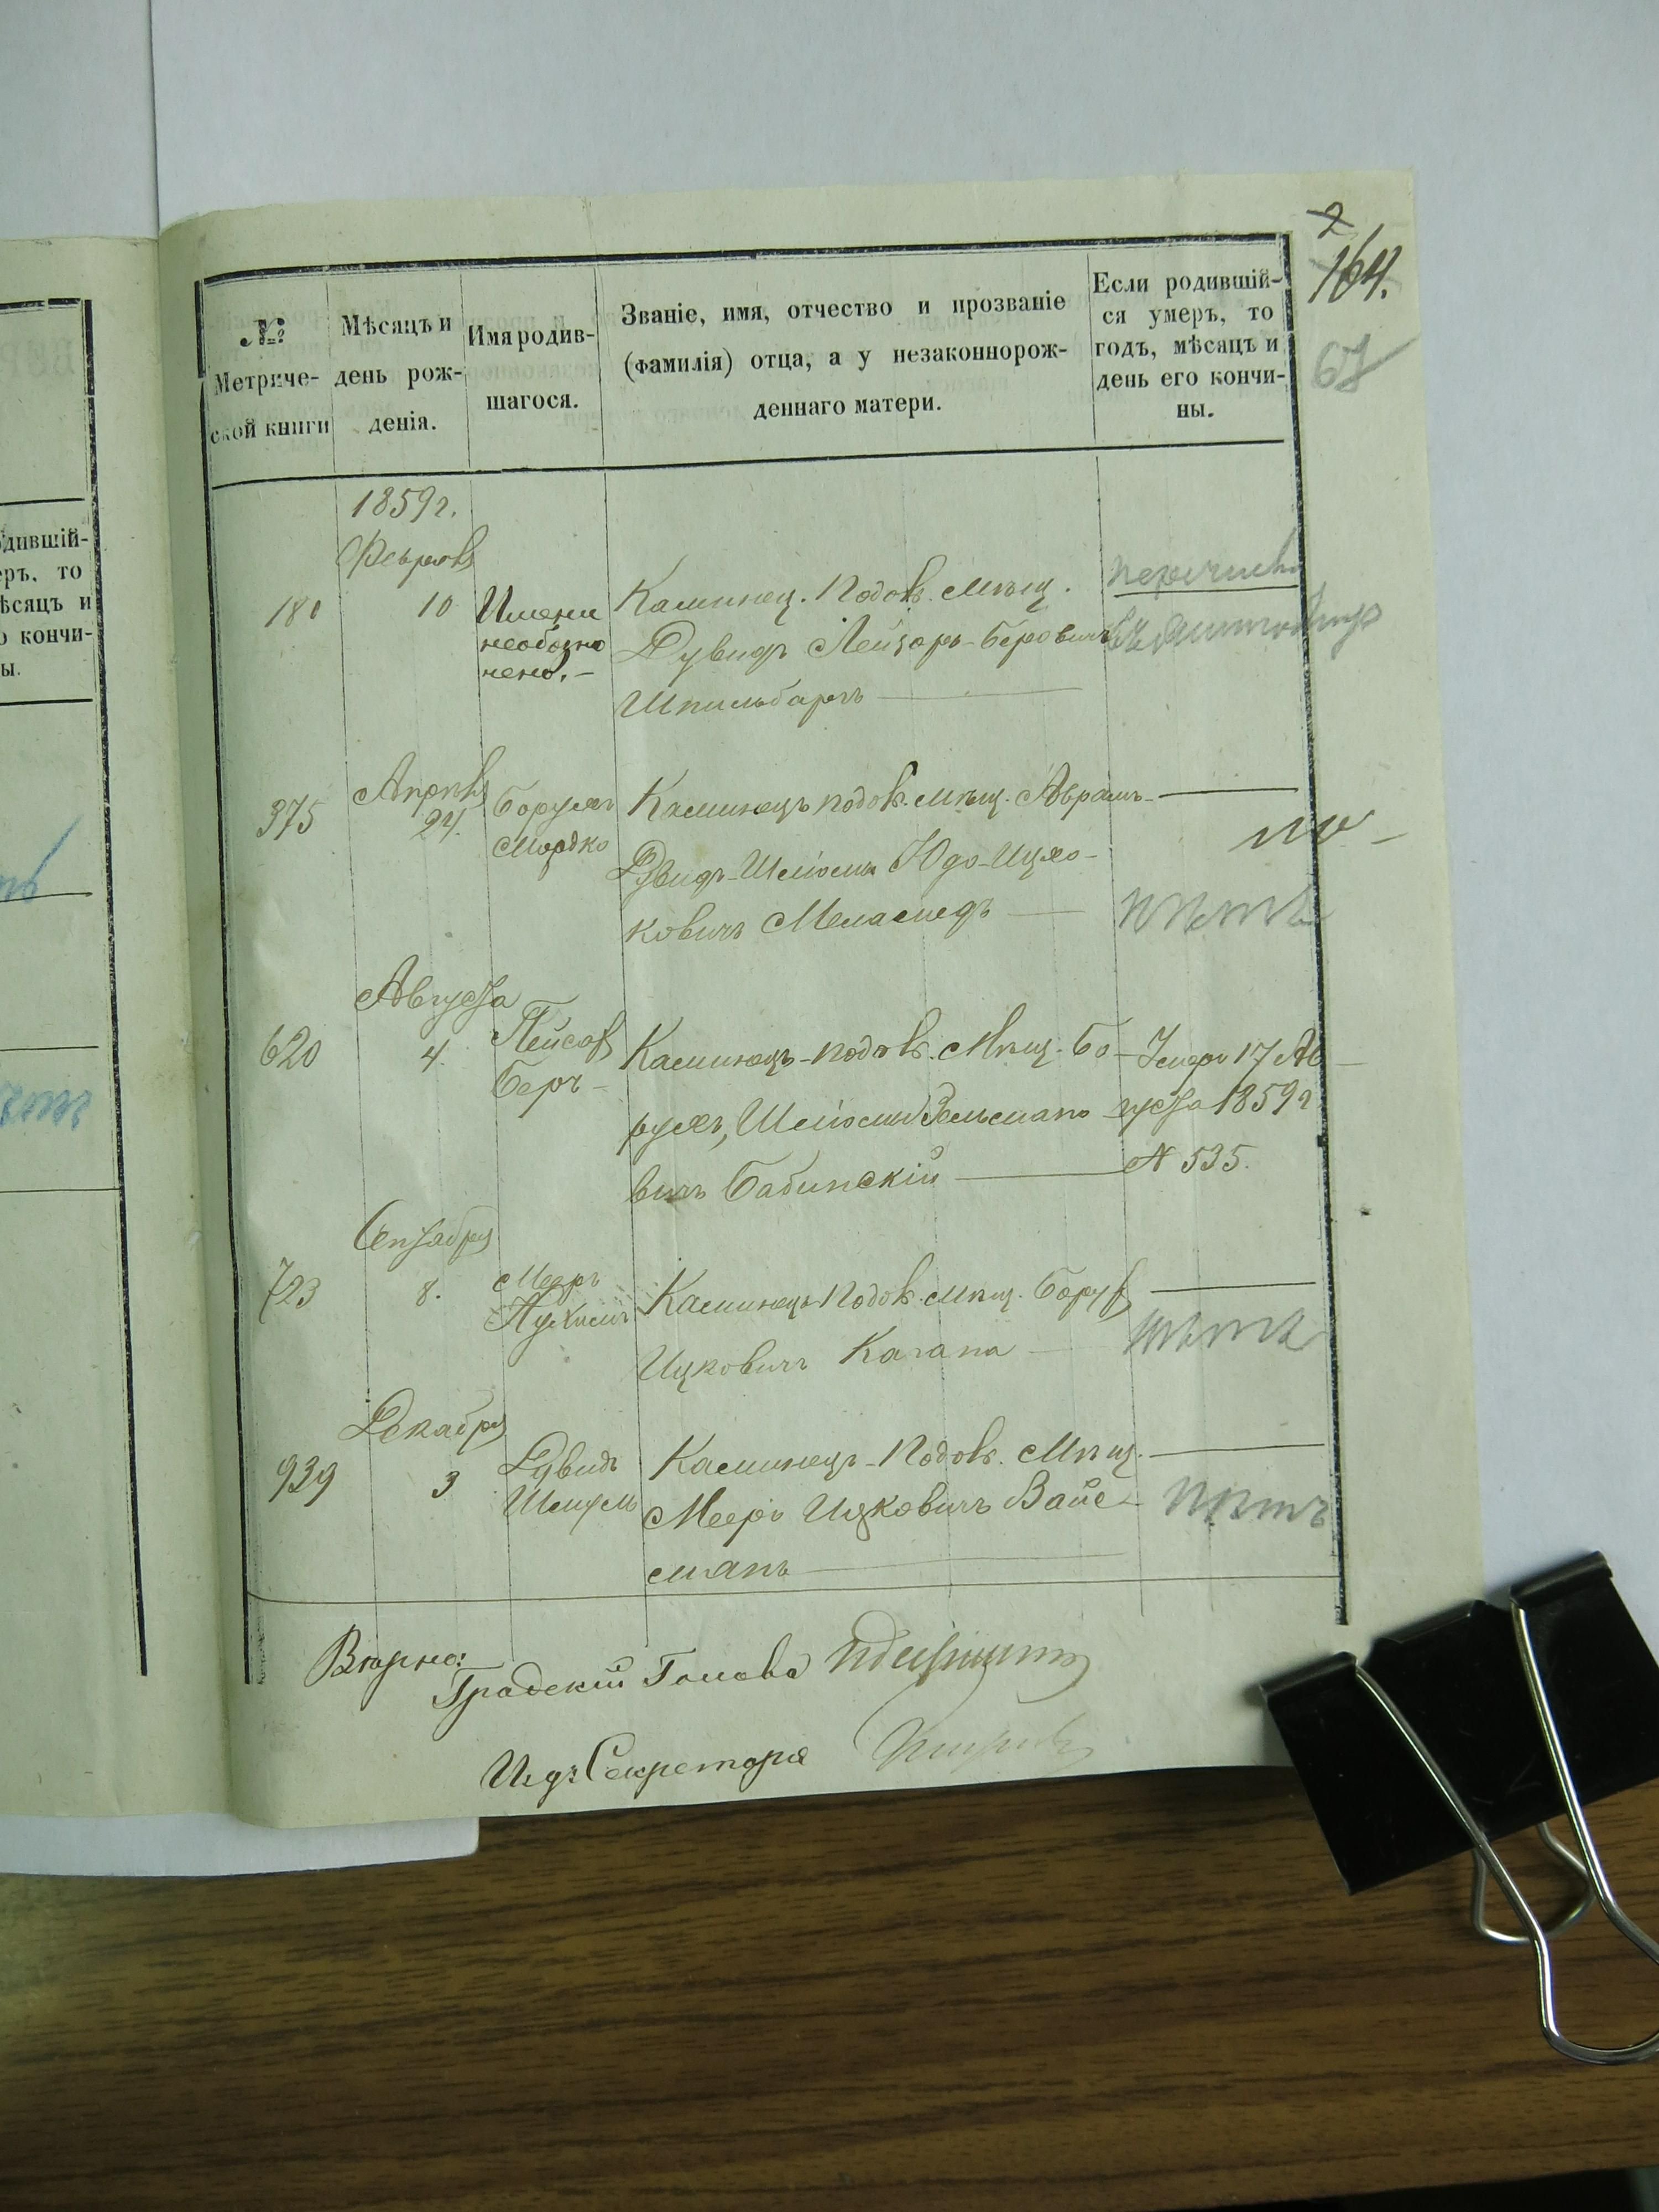 2
164.
67
№
Метриче-
ской книги
Мѣсяцъ и
день рож-
денія.
Имя родив-
шагося.
Званіе, имя, отчество и прозваніе
(фамилія) отца, а у незаконнорож-
деннаго матери.
Если родившій-
ся умеръ, то
годъ, мѣсяцъ и
день его кончи-
ны.
1859 г.
Февраля
180
10
Имени
необозна
чено.-
Каминец. Подол. мѣщ.
Дувидъ Лейзоръ-Беровичъ
Шпильбаргъ
Апрѣля
375
24.
Борухъ
Мордко
Каминецъ подол. мѣщ. Абрамъ-
Дувидъ-Шлiома Юдо-Ицко-
ковичъ Меламедъ
нѣтъ
Августа
620
4.
Пейсах
Беръ-
Каминецъ-подол. Мѣщ. Бо-
рухъ, Шлiома Зельмано
вичъ Бабинскій
Умеръ 17 Ав-
густа 1859 г
№ 535.
Сентября
723
8.
Мееръ
Нухимъ
Каминецъ Подол. мѣщ. Борух
Ицковичъ Кагана
нѣтъ
Декабря
939
3
Дувидъ
Шмуль
Каминецъ-Подол. Мѣщ.
Мееръ Ицковичъ Вайс-
манъ
нѣтъ
Вѣрно:
Градскій Голова
Изд. Секретаря
дившій-
еръ, то
ѣсяцъ и
о кончи-
ы.